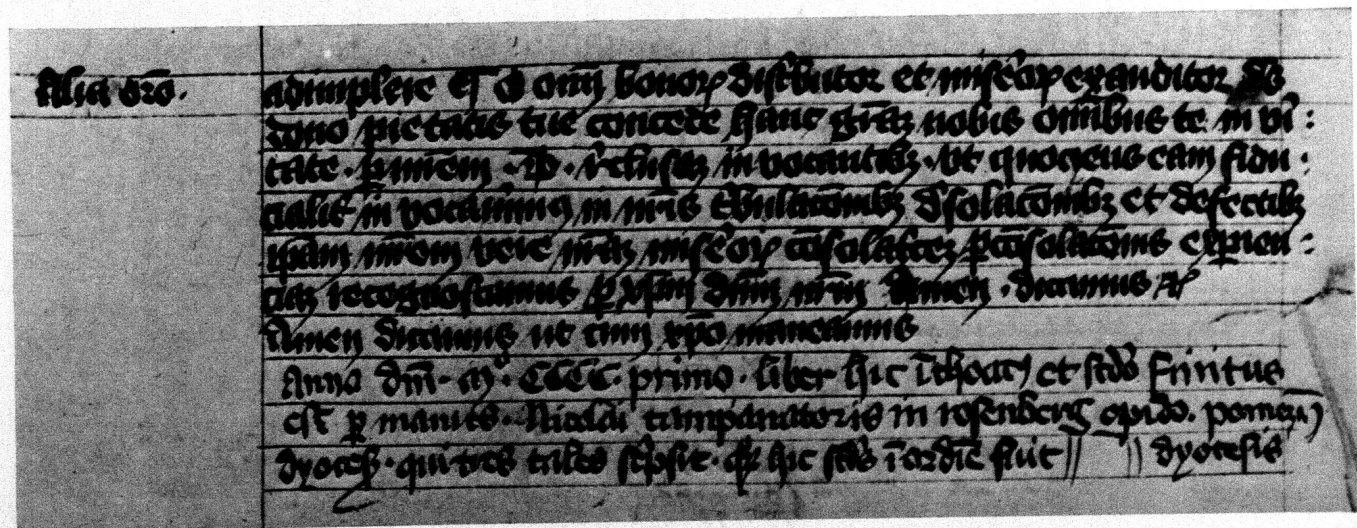 Alia oro.
adimplere Et O oīm bonorꝝ distbutor et misorꝝ exauditor
dono pietatis tue concede hanc grāꝫ nobis omibus te in vi:
tate · p mrem · invocantibꝫ · ut quocieus eam fidu:
cialit in vocauimꝰ in nr̄is tbulacōnibꝫ dsolacōnibꝫ et defectibꝫ
ipam mr̄em vere mr̄aꝫ misorꝝ cōsolatcꝫ p cōsolacōnis expien:
ciaꝫ recognoscamus p xpm dnm nrm Amen · dicamus
Amen dicamus ut cum xpo maneamus
Anno dm̄i · mͦ · CCCC · primo · liber hic et scds finitus
est ꝑ manus · Nicolai campanatoris in rosenberg opido. pomez
dyoces · qui tres tales scpsit · hic scds ī ordīe fuit || || dyocesis